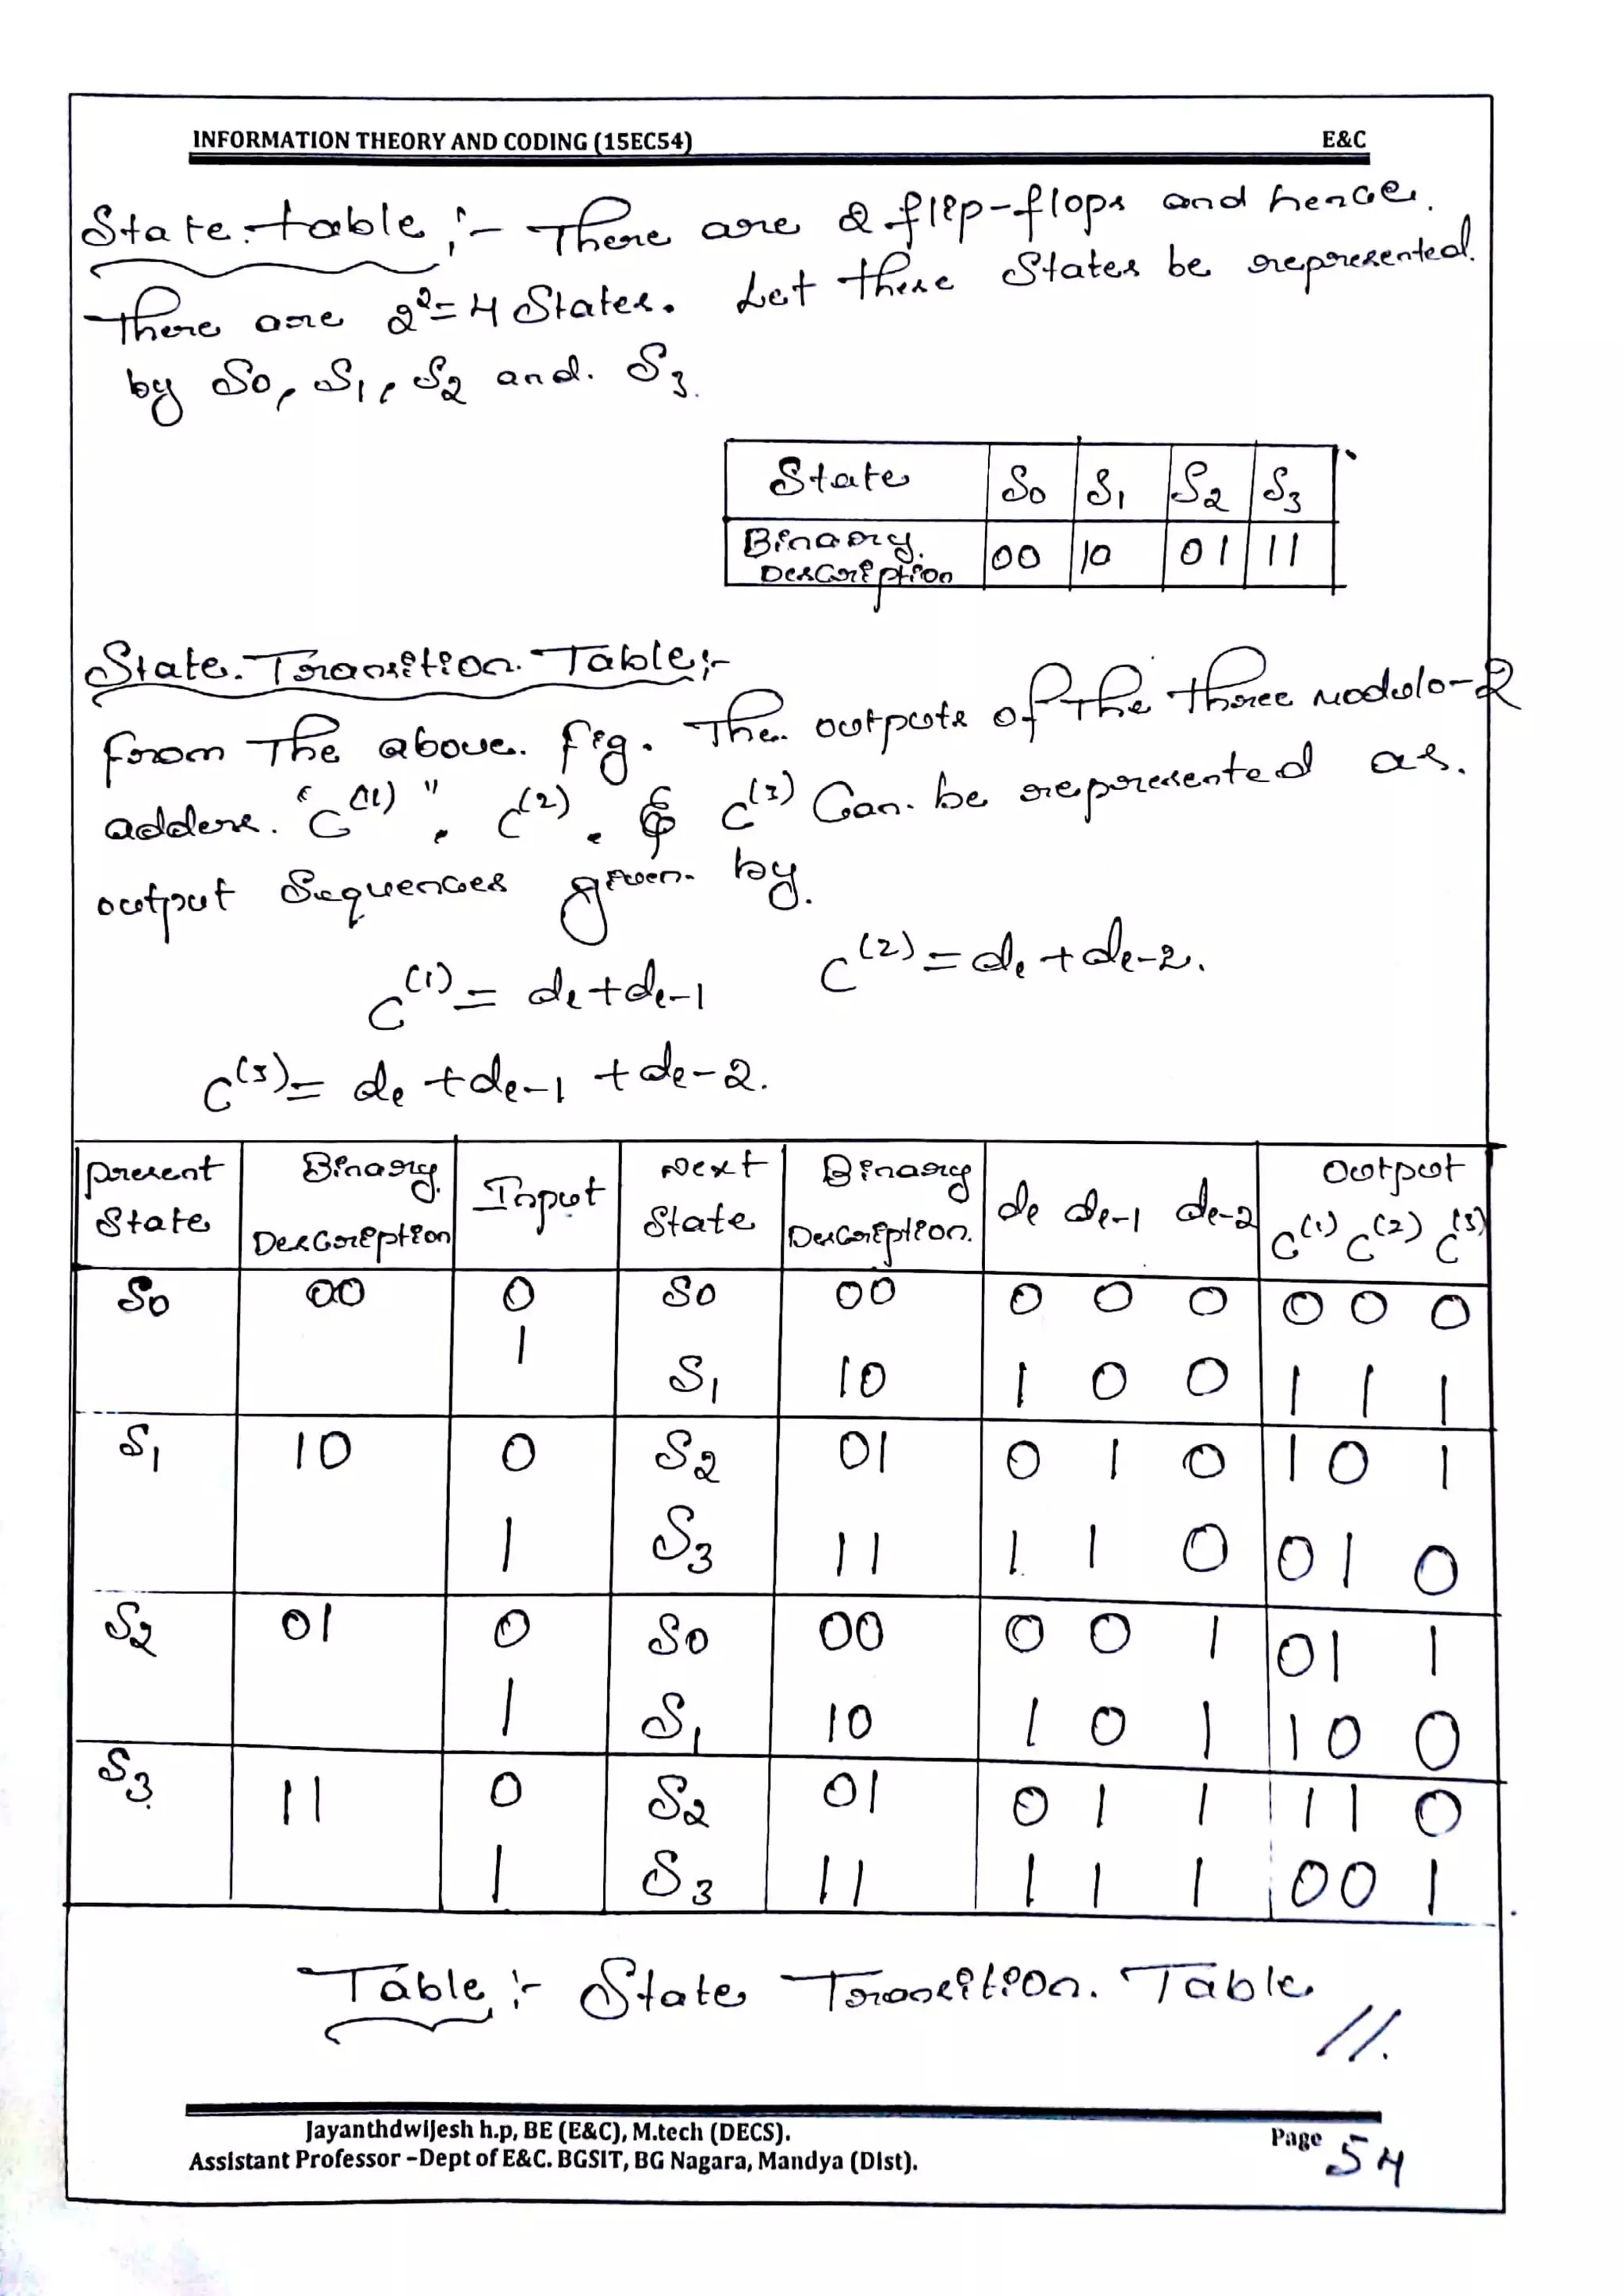 INFORMATION THEORY AND CODING (15EC54) E&C
State table :- There are 2 flip-flops and hence.
There are 2²=4 States. Let these States be represented.
by S0, S1, S2 and. S3.
State S0 S1 S2 S3
Binary. Description 00 10 01 11
State. Transition. Table :-
From The above. fig. The. outputs of The three modulo-2
adders. "C(1)", C(2). & C(3) Can. be represented as.
output Sequences given. by.
C(1) = dl + dl-1 C(2) = dl + dl-2.
C(3) = dl + dl-1 + dl-2.
present State Binary. Description Input Next State Binary Description. dl dl-1 dl-2 Output C(1) C(2) C(3)
S0 00 0 S0 00 0 0 0 0 0 0
1 S1 10 1 0 0 1 1 1
S1 10 0 S2 01 0 1 0 1 0 1
1 S3 11 1 1 0 0 1 0
S2 01 0 S0 00 0 0 1 0 1 1
1 S1 10 1 0 1 1 0 0
S3 11 0 S2 01 0 1 1 1 1 0
1 S3 11 1 1 1 0 0 1
Table :- State Transition. Table //.
Jayanthdwijesh h.p, BE (E&C), M.tech (DECS).
Assistant Professor -Dept of E&C. BGSIT, BG Nagara, Mandya (Dist).
Page 54